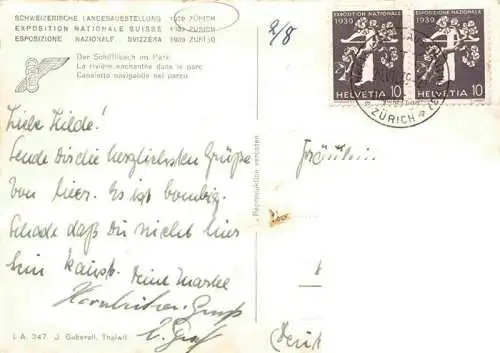 SCHWEIZERISCHE LANDESAUSSTELLUNG 1939 ZÜRICH
EXPOSITION NATIONALE SUISSE 1939 ZURICH
ESPOSIZIONE NAZIONALE SVIZZERA 1939 ZURIGO
Der Schifflibach im Park
La rivière enchantée dans le parc
Canaletto navigabile nel parco
2/8
EXPOSITION NATIONALE
1939
HELVETIA 10
1939
HELVETIA 10
ZÜRICH
Liebe Hilde!
Sende Dir die herzlichsten Grüße
von hier. Es ist bombig.
Schade daß Du nicht hier
sein kannst. Deine
Gruß
Fräulein
Reproduktion verboten
L.A. 347 J. Gaberell, Thalwil